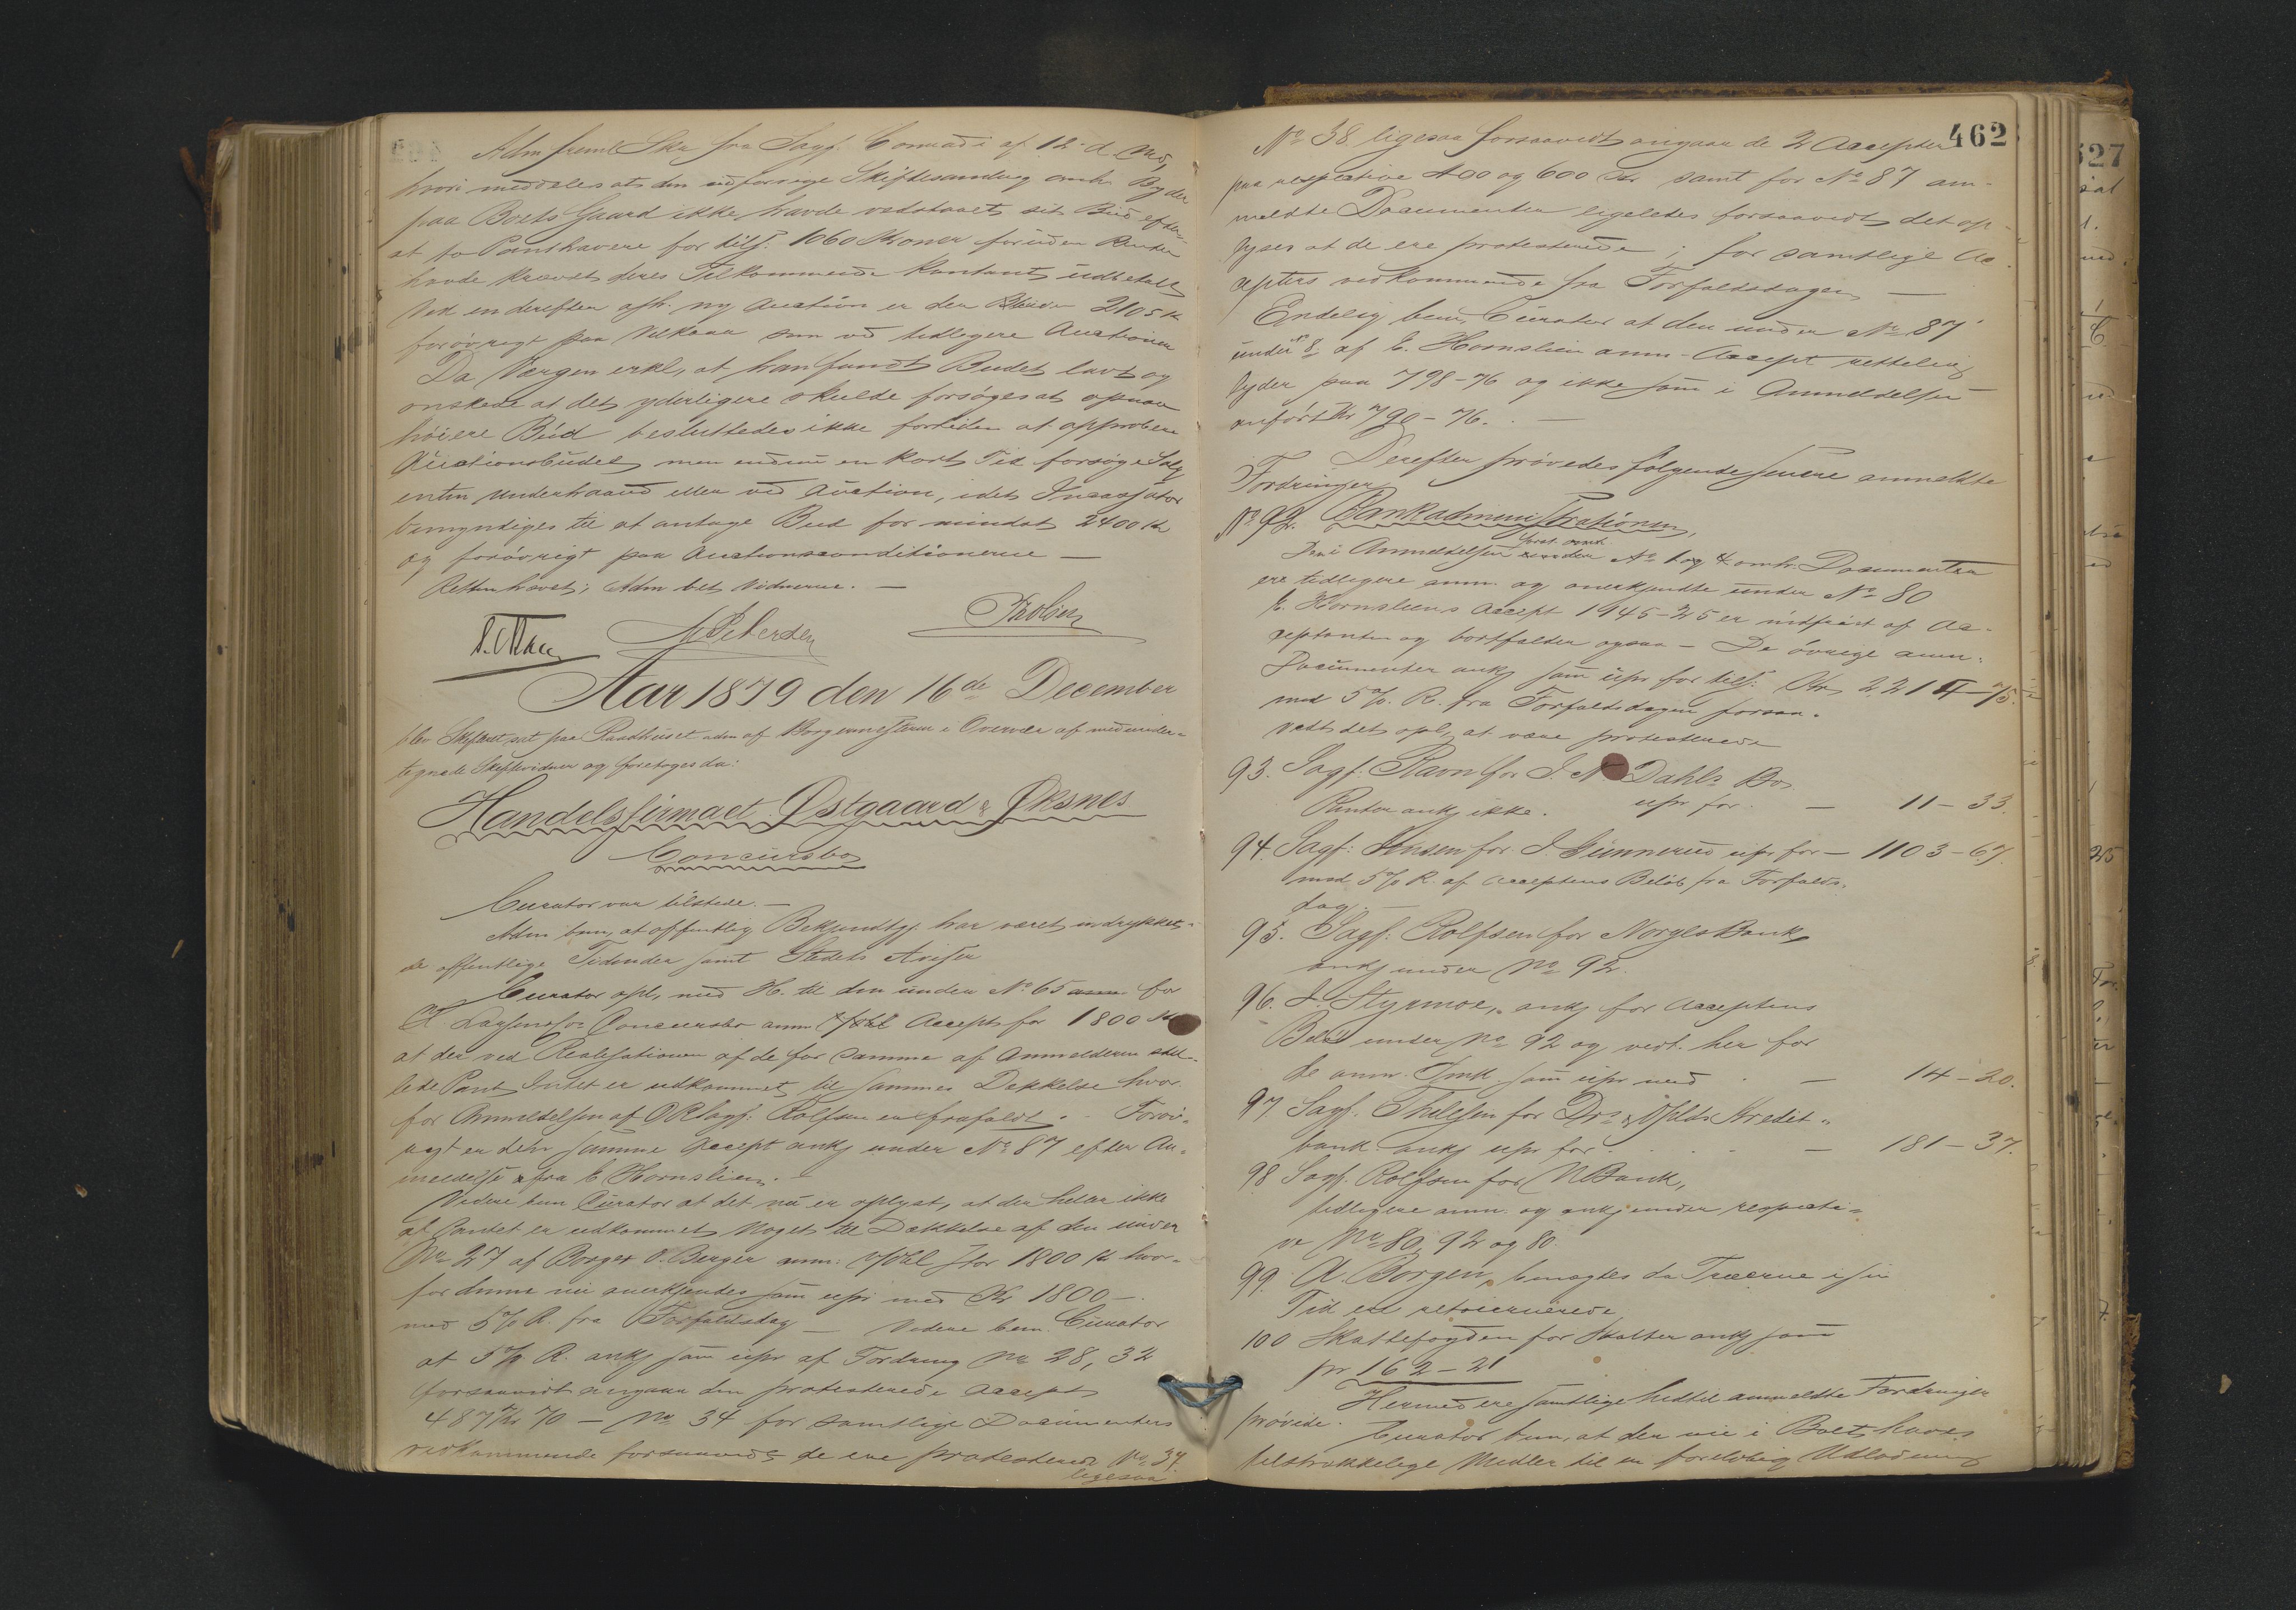 Adm freml. Skr fra Sagf. Conradi af 12 d. Md,
hvori meddeles at den ved forrige Skiftesamling omh. Byder
paa Boets Gaard ikke havde vedstaaet sit Bud efter-
at to Panthavere for tils. 1060 Kroner foruden Renter
havde krævet deres Tilkommende kontant udbetalt
Ved en derefter afh. ny Auction er der buden 2105 Kr
forøvrigt paa Vilkaar som ved tidligere Auctioner
Da Værgen erkl, at han fandt Budet lavt og
ønskede at det yderligere skulde forsøges at opnaa
høiere Bud besluttedes ikke fortiden at approbere
Auctionsbudet, men endnu en kort Tid forsøge Salg
enten underhaand eller ved Auction, idet Incassator
bemyndiges til at antage Bud for mindst 2400 Kr
og forøvrigt paa Auctionsconditionerne —
Retten hævet; Adm bet. Vidnerne. —
Aar 1879 den 16de December
blev Skifteret sat paa Raadhuset adm af Borgermesteren i Overvær af medunder-
tegnede Skiftevidner og foretoges da:
Handelsfirmaet Østgaard & Øksnes
Concursbo
Curator var tilstede. —
Adm bem, at offentlig Bekjendtgj. har været indrykket i
de offentlige Tidender samt Stedets Aviser
Curator opl, med H. til den under No 65 anm for
Concursbo anm Accept for 1800 Kr
at der ved Realisationen af de for samme af Anmelderen stil-
lede Pant Intet er udkommet til sammes Dækkelse hvor-
for Anmeldelsen af ORsagf. Rolfsen er frafaldt. Forøv-
rigt er den samme Accept ankj under No 87 efter An-
meldelse fra E Hornslien. —
Videre bem Curator at det nu er oplyst, at der heller ikke
af Pantet er udkommet Noget til Dækkelse af den under
No 27 af Borger O. Berger anm. for 1800 Kr hvor-
for denne nu anerkjendes som upr med Kr 1800 —
med 5% R. fra Forfaldsdag — Videre bem. Curator
at 5% R. ankj som upr af Fordring No 28, 32
forsaavidt angaar den protesterede Accept
487 Kr 70 — No 34 for samtlige Documenters
vedkommende forsaavidt de ere protesterede No 37
ligesaa
462
No 38 ligesaa forsaavidt angaar de 2 Accepter
paa respective 400 og 600 Kr samt for No 87 an-
meldte Documenter ligeledes forsaavidt det op-
lyses at de ere protesterede; for samtlige Ac-
cepters vedkommende fra Forfaldsdagen —
Endelig bem. Curator at den under No 87
under 8 af E. Hornslien anm Accept rettelig
lyder paa 798-76 og ikke som i Anmeldelsen
anført Kr 790-76. —
Derefter prøvedes følgende senere anmeldte
Fordringer
No 92. Bankadministrationen,
De i Anmeldelsen No 1 og 4 omh. Documenter
ere tidligere anm. og anerkjendte under No 80
E. Hornsliens Accept 1945-25 er indfriet af Ac-
ceptanten og bortfalder ogsaa — De øvrige anm.
Documenter ankj som upr for tils. Kr 2214-75.
med 5% R. fra Forfaldsdagen forsaa-
vidt det opl, at være protesterede
93. Sagf. Ravn for J. N Dahls Bo
Renter ankj ikke. upr for — 11-33.
94. Sagf: Jensen for J. Gunnerud upr for — 1103-67.
med 5% R. af Acceptens Beløb fra Forfalds-
dag. —
95. Sagf. Rolfsen for Norges Bank
ankj under No 92.
96. J. Styrmoe, ankj for Acceptens
Beløb under No 92 og vedt. her for
de anm. Omk som upr med — 14-20.
97 Sagf. Thilesen for Drs & Opl Kredit-
bank ankj upr for — 181-37.
98 Sagf. Rolfsen for NBank,
tidligere anm. og ankj under respecti-
ve No 80, 92 og 80.
99 A. Borgen, benægtes da Træerne i sin
Tid ere retournerede
100 Skattefogden for Skatter ankj som
pr 162-21
Hermed ere samtlige hidtil anmeldte Fordringer
prøvede.
Curator bem, at der nu i Boet haves
tilstrækkelige Midler til en foreløbig Udlodning